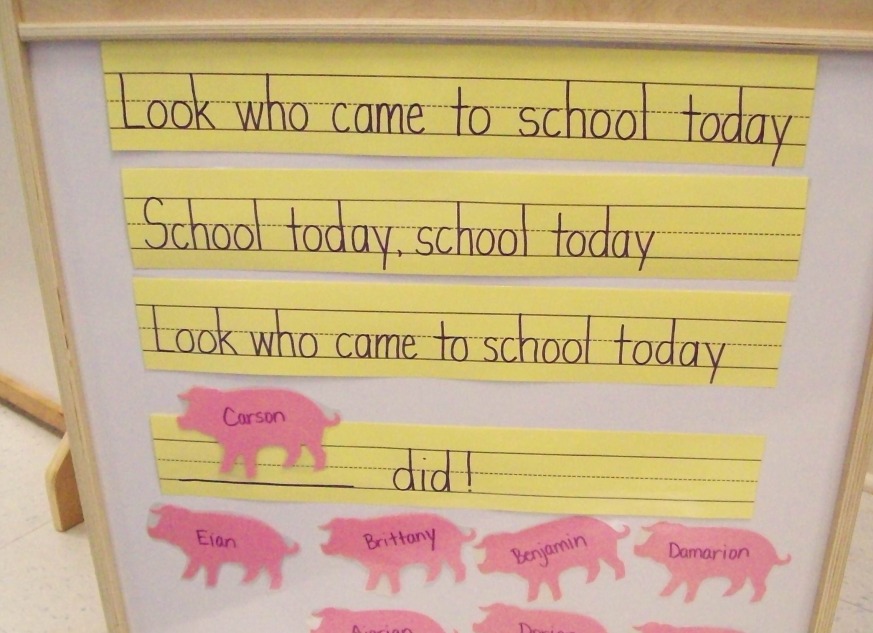 Look who came to school today
School today, school today
Look who came to school today
Carson
did!
Eian Brittany Benjamin Damarion